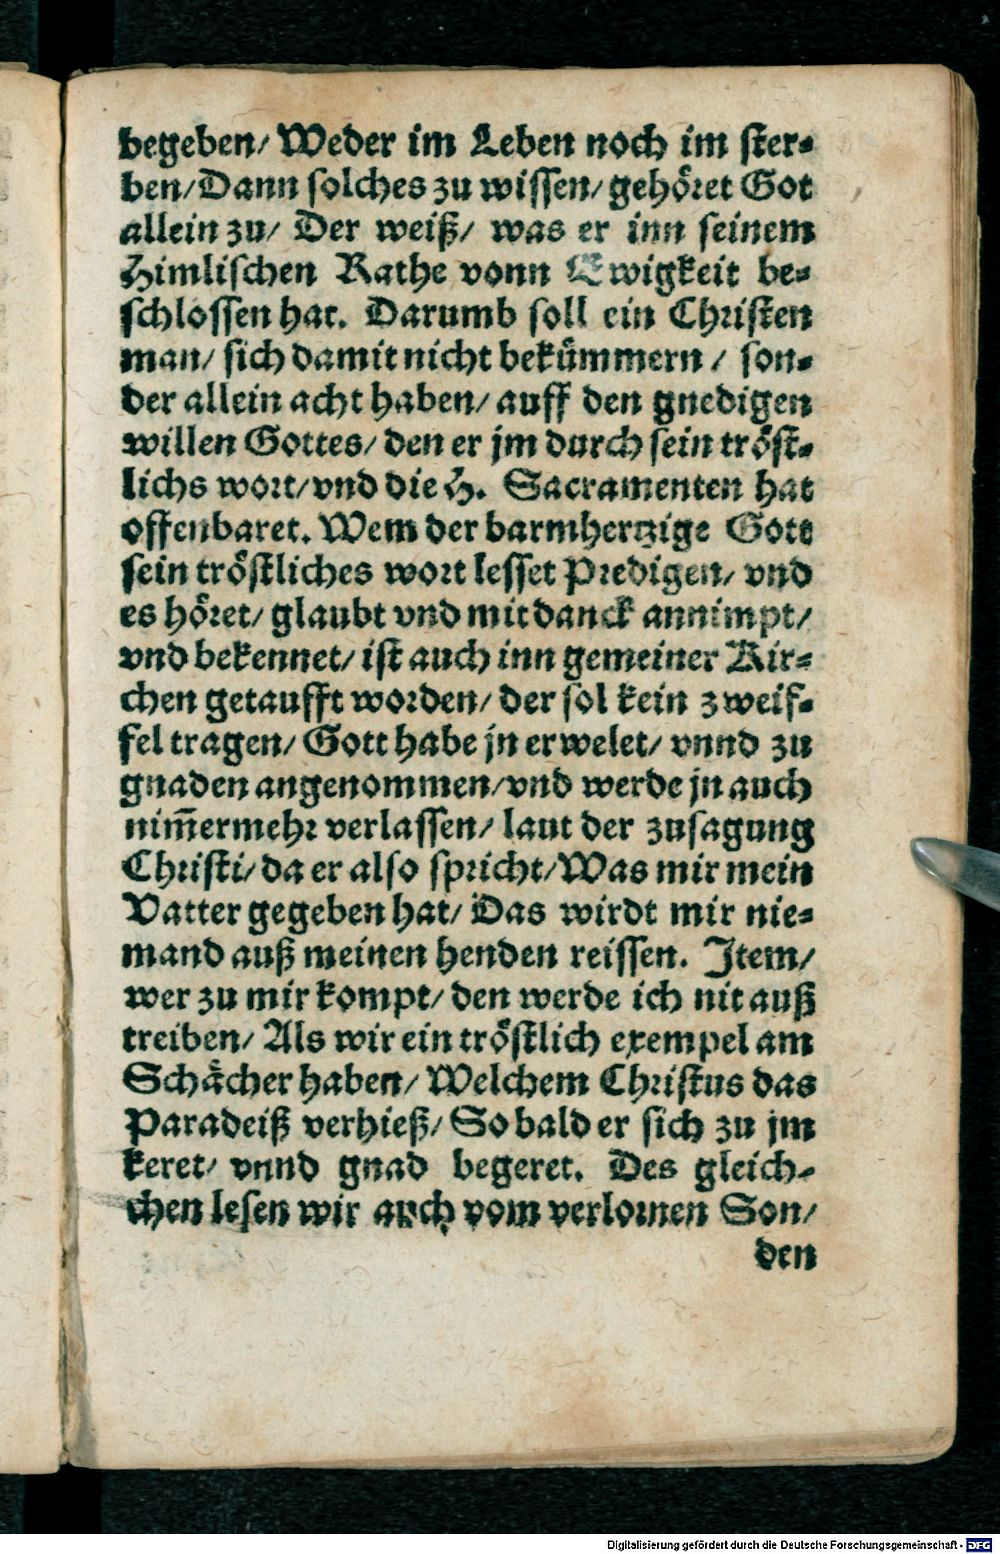 begeben/ Weder im Leben noch im ster⸗
ben/ Dann solches zu wissen/ gehöret Got
allein zu/ Der weiß/ was er inn seinem
Himlischen Rathe vonn Ewigkeit be⸗
schlossen hat. Darumb soll ein Christen
man/ sich damit nicht bekümmern / son⸗
der allein acht haben/ auff den gnedigen
willen Gottes/ den er jm durch sein tröst⸗
lichs wort/ vnd die H. Sacramenten hat
offenbaret. Wem der barmhertzige Gott
sein tröstliches wort lesset Predigen/ vnd
es höret/ glaubt vnd mit danck annimpt/
vnd bekennet/ ist auch inn gemeiner Kir⸗
chen getaufft worden/ der sol kein zweif⸗
fel tragen/ Gott habe jn erwelet/ vnnd zu
gnaden angenommen/ vnd werde jn auch
nim̅ermehr verlassen/ laut der zusagung
Christi/ da er also spricht/ Was mir mein
Vatter gegeben hat/ Das wirdt mir nie⸗
mand auß meinen henden reissen. Item/
wer zu mir kompt/ den werde ich nit auß
treiben/ Als wir ein tröstlich exempel am
Schächer haben/ Welchem Christus das
Paradeiß verhieß/ So bald er sich zu jm
keret/ vnnd gnad begeret. Des gleich⸗
chen lesen wir auch vom verlornen Son/
den
Digitalisierung gefördert durch die Deutsche Forschungsgemeinschaft - DFG